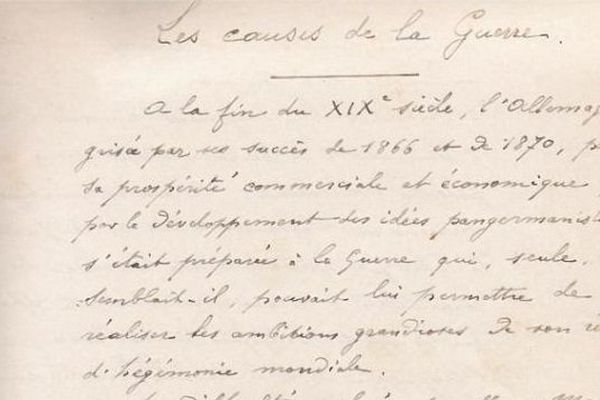 Les causes de la Guerre.
A la fin du XIXe siècle, l'Allemag
grisée par ses succès de 1866 et de 1870, p
sa prospérité commerciale et économique,
par le développement des idées pangermanist
s'était préparée à la Guerre qui, seule,
semblait-il, pouvait lui permettre de
réaliser les ambitions grandioses de son r
d'hégémonie mondiale.